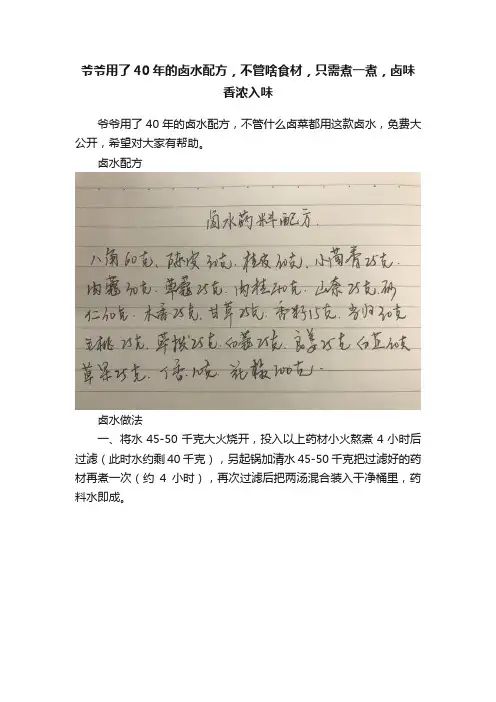 爷爷用了40年的卤水配方，不管啥食材，只需煮一煮，卤味
香浓入味
爷爷用了40年的卤水配方，不管什么卤菜都用这款卤水，免费大
公开，希望对大家有帮助。
卤水配方
卤水药料配方.
八角60克、陈皮30克.桂皮30克、小茴香25克.
肉蔻30克.草蔻25克.肉桂克.山柰25克.砂
仁克.木香25克.甘草25克.香籽15克.当归30克
桃25克.荜拨25克.白蔻25克.良姜25克 白芷克
草果25克.丁香10克.花椒100克.
卤水做法
一、将水45-50千克大火烧开，投入以上药材小火熬煮4小时后
过滤（此时水约剩40千克），另起锅加清水45-50千克把过滤好的药
材再煮一次（约4小时），再次过滤后把两汤混合装入干净桶里，药
料水即成。